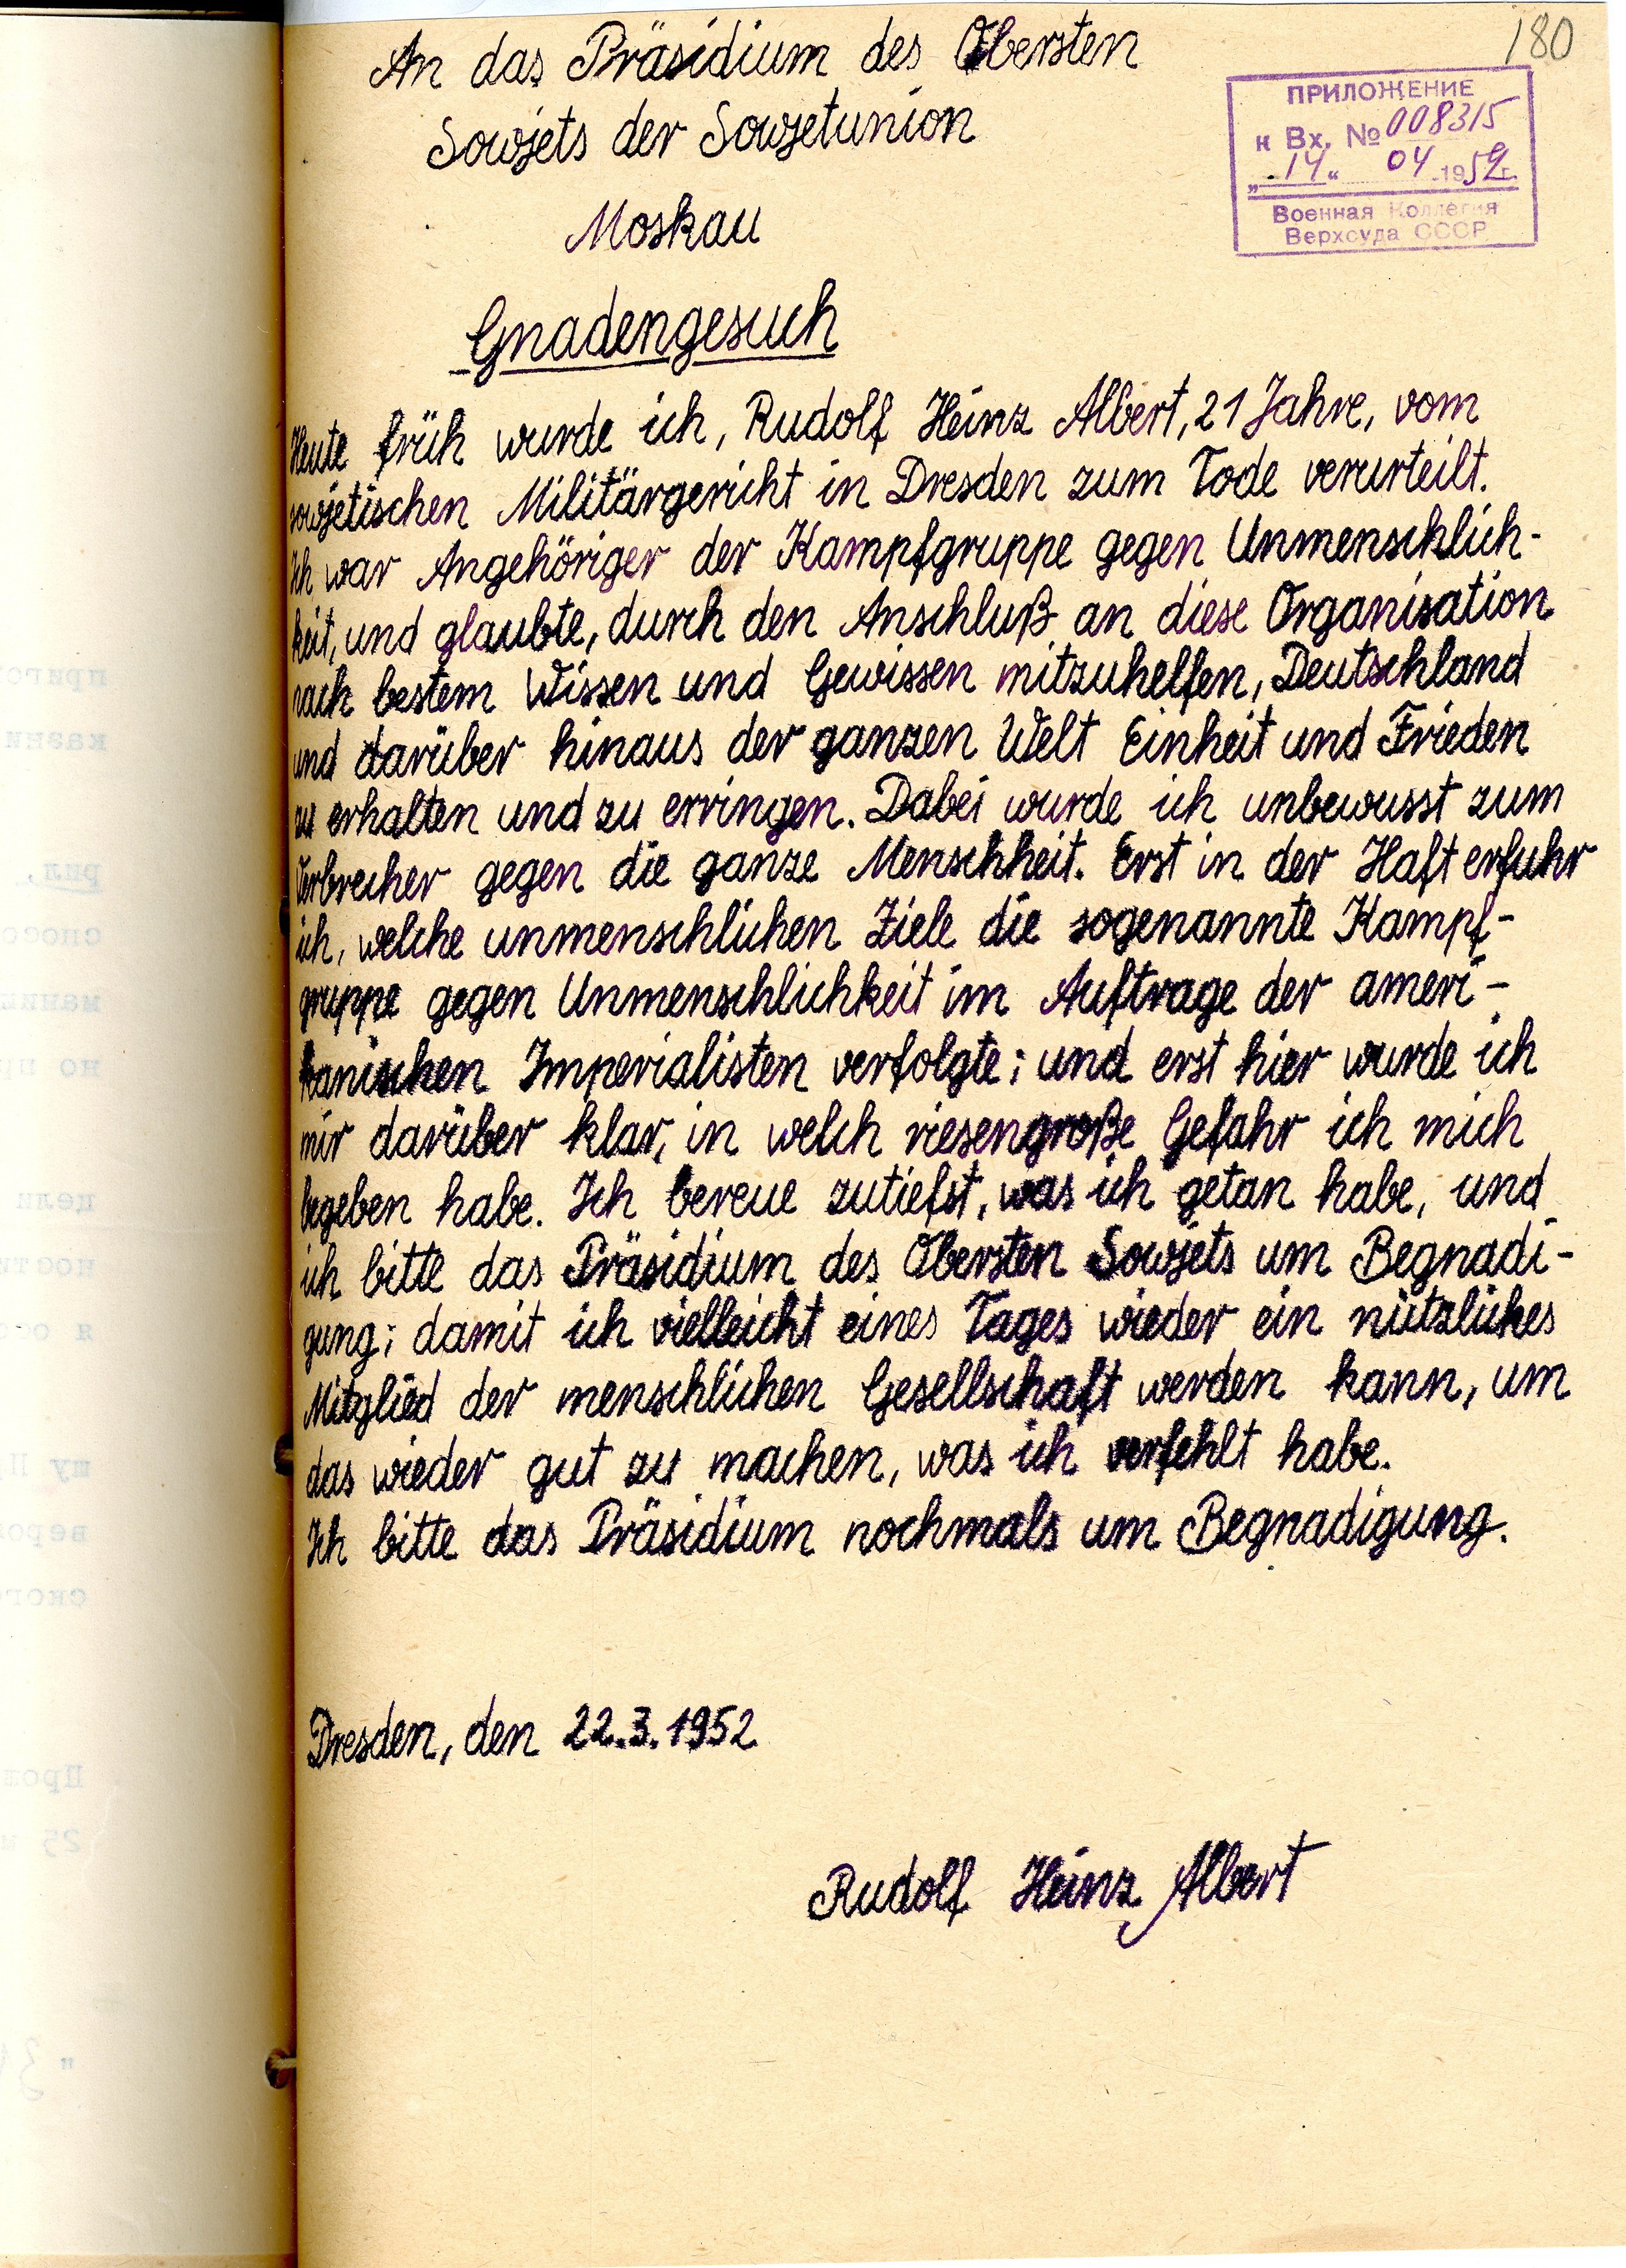 180
An das Präsidium des Obersten
Sowjets der Sowjetunion
Moskau
ПРИЛОЖЕНИЕ
к Вх. № 008315
„14“ 04 1952 г.
Военная Коллегия
Верхсуда СССР
Gnadengesuch
Heute früh wurde ich, Rudolf Heinz Albert, 21 Jahre, vom
sowjetischen Militärgericht in Dresden zum Tode verurteilt.
Ich war Angehöriger der Kampfgruppe gegen Unmenschlich-
keit, und glaubte, durch den Anschluß an diese Organisation
nach bestem Wissen und Gewissen mitzuhelfen, Deutschland
und darüber hinaus der ganzen Welt Einheit und Frieden
zu erhalten und zu erringen. Dabei wurde ich unbewusst zum
Verbrecher gegen die ganze Menschheit. Erst in der Haft erfuhr
ich, welche unmenschlichen Ziele die sogenannte Kampf-
gruppe gegen Unmenschlichkeit im Auftrage der ameri-
kanischen Imperialisten verfolgte; und erst hier wurde ich
mir darüber klar, in welch riesengroße Gefahr ich mich
begeben habe. Ich bereue zutiefst, was ich getan habe, und
ich bitte das Präsidium des Obersten Sowjets um Begnadi-
gung; damit ich vielleicht eines Tages wieder ein nützliches
Mitglied der menschlichen Gesellschaft werden kann, um
das wieder gut zu machen, was ich verfehlt habe.
Ich bitte das Präsidium nochmals um Begnadigung.
Dresden, den 22.3.1952
Rudolf Heinz Albert